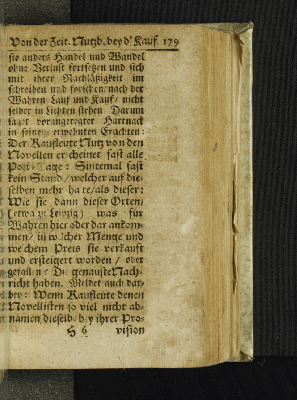 Von der Zeit. Nutzb. bey d' Kauf 179
sie anders Handel und Wandel
ohne Verlust fortsetzen und sich
mit ihrer Nachläßigkeit im
schreiben und forschen nach der
Wahren Lauf und Kauf / nicht
selber in Lichten stehen. Darum
saget vorangeregter Hartnack
in seinem erwehnten Erachten:
Der Kaufleute Nutz von den
Novellen erscheinet fast alle
Post-Tage: Sintemal fast
kein Stand / welcher auf die-
selben mehr halte / als dieser:
Wie sie dann dieser Orten/
(etwa zu Leipzig) was für
Wahren hier oder dar ankom-
men / in welcher Mentze und
welchem Preis sie verkauft
und ersteigert worden / oder
gefallen: Die genauste Nach-
richt haben. Meldet auch dar-
bey: Wenn Kaufleute denen
Novellisten so viel nicht ab-
namen dieselb. b y ihrer Pro-
H 6 vision